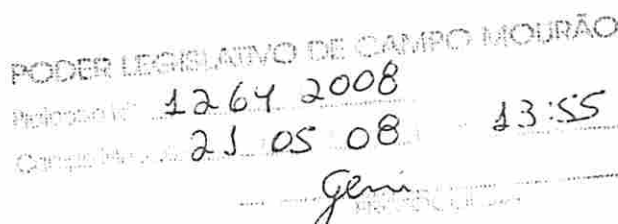 PODER LEGISLATIVO DE CAMPO MOURÃO
Protocolo Nº 1264 2008
21 05 08 13:55
Geni